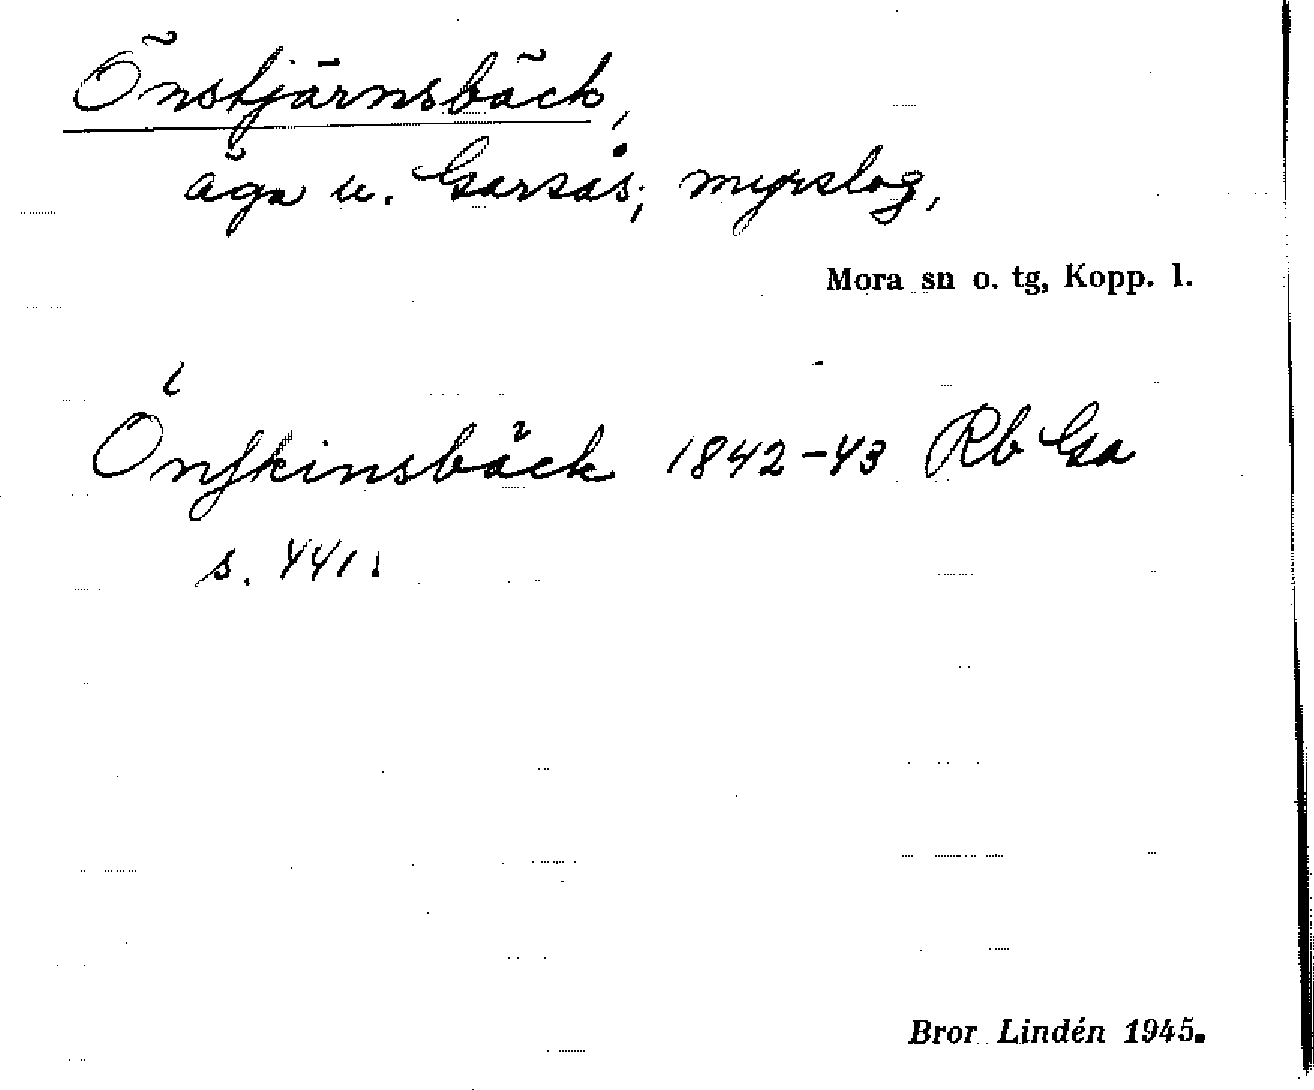 Önstjärnsbäck,
äga u. Garsås; myrslog,
Mora sn o. tg, Kopp. l.
Önskinsbäck 1842-43 Rb Gsa
s. 441.
Bror Lindén 1945.